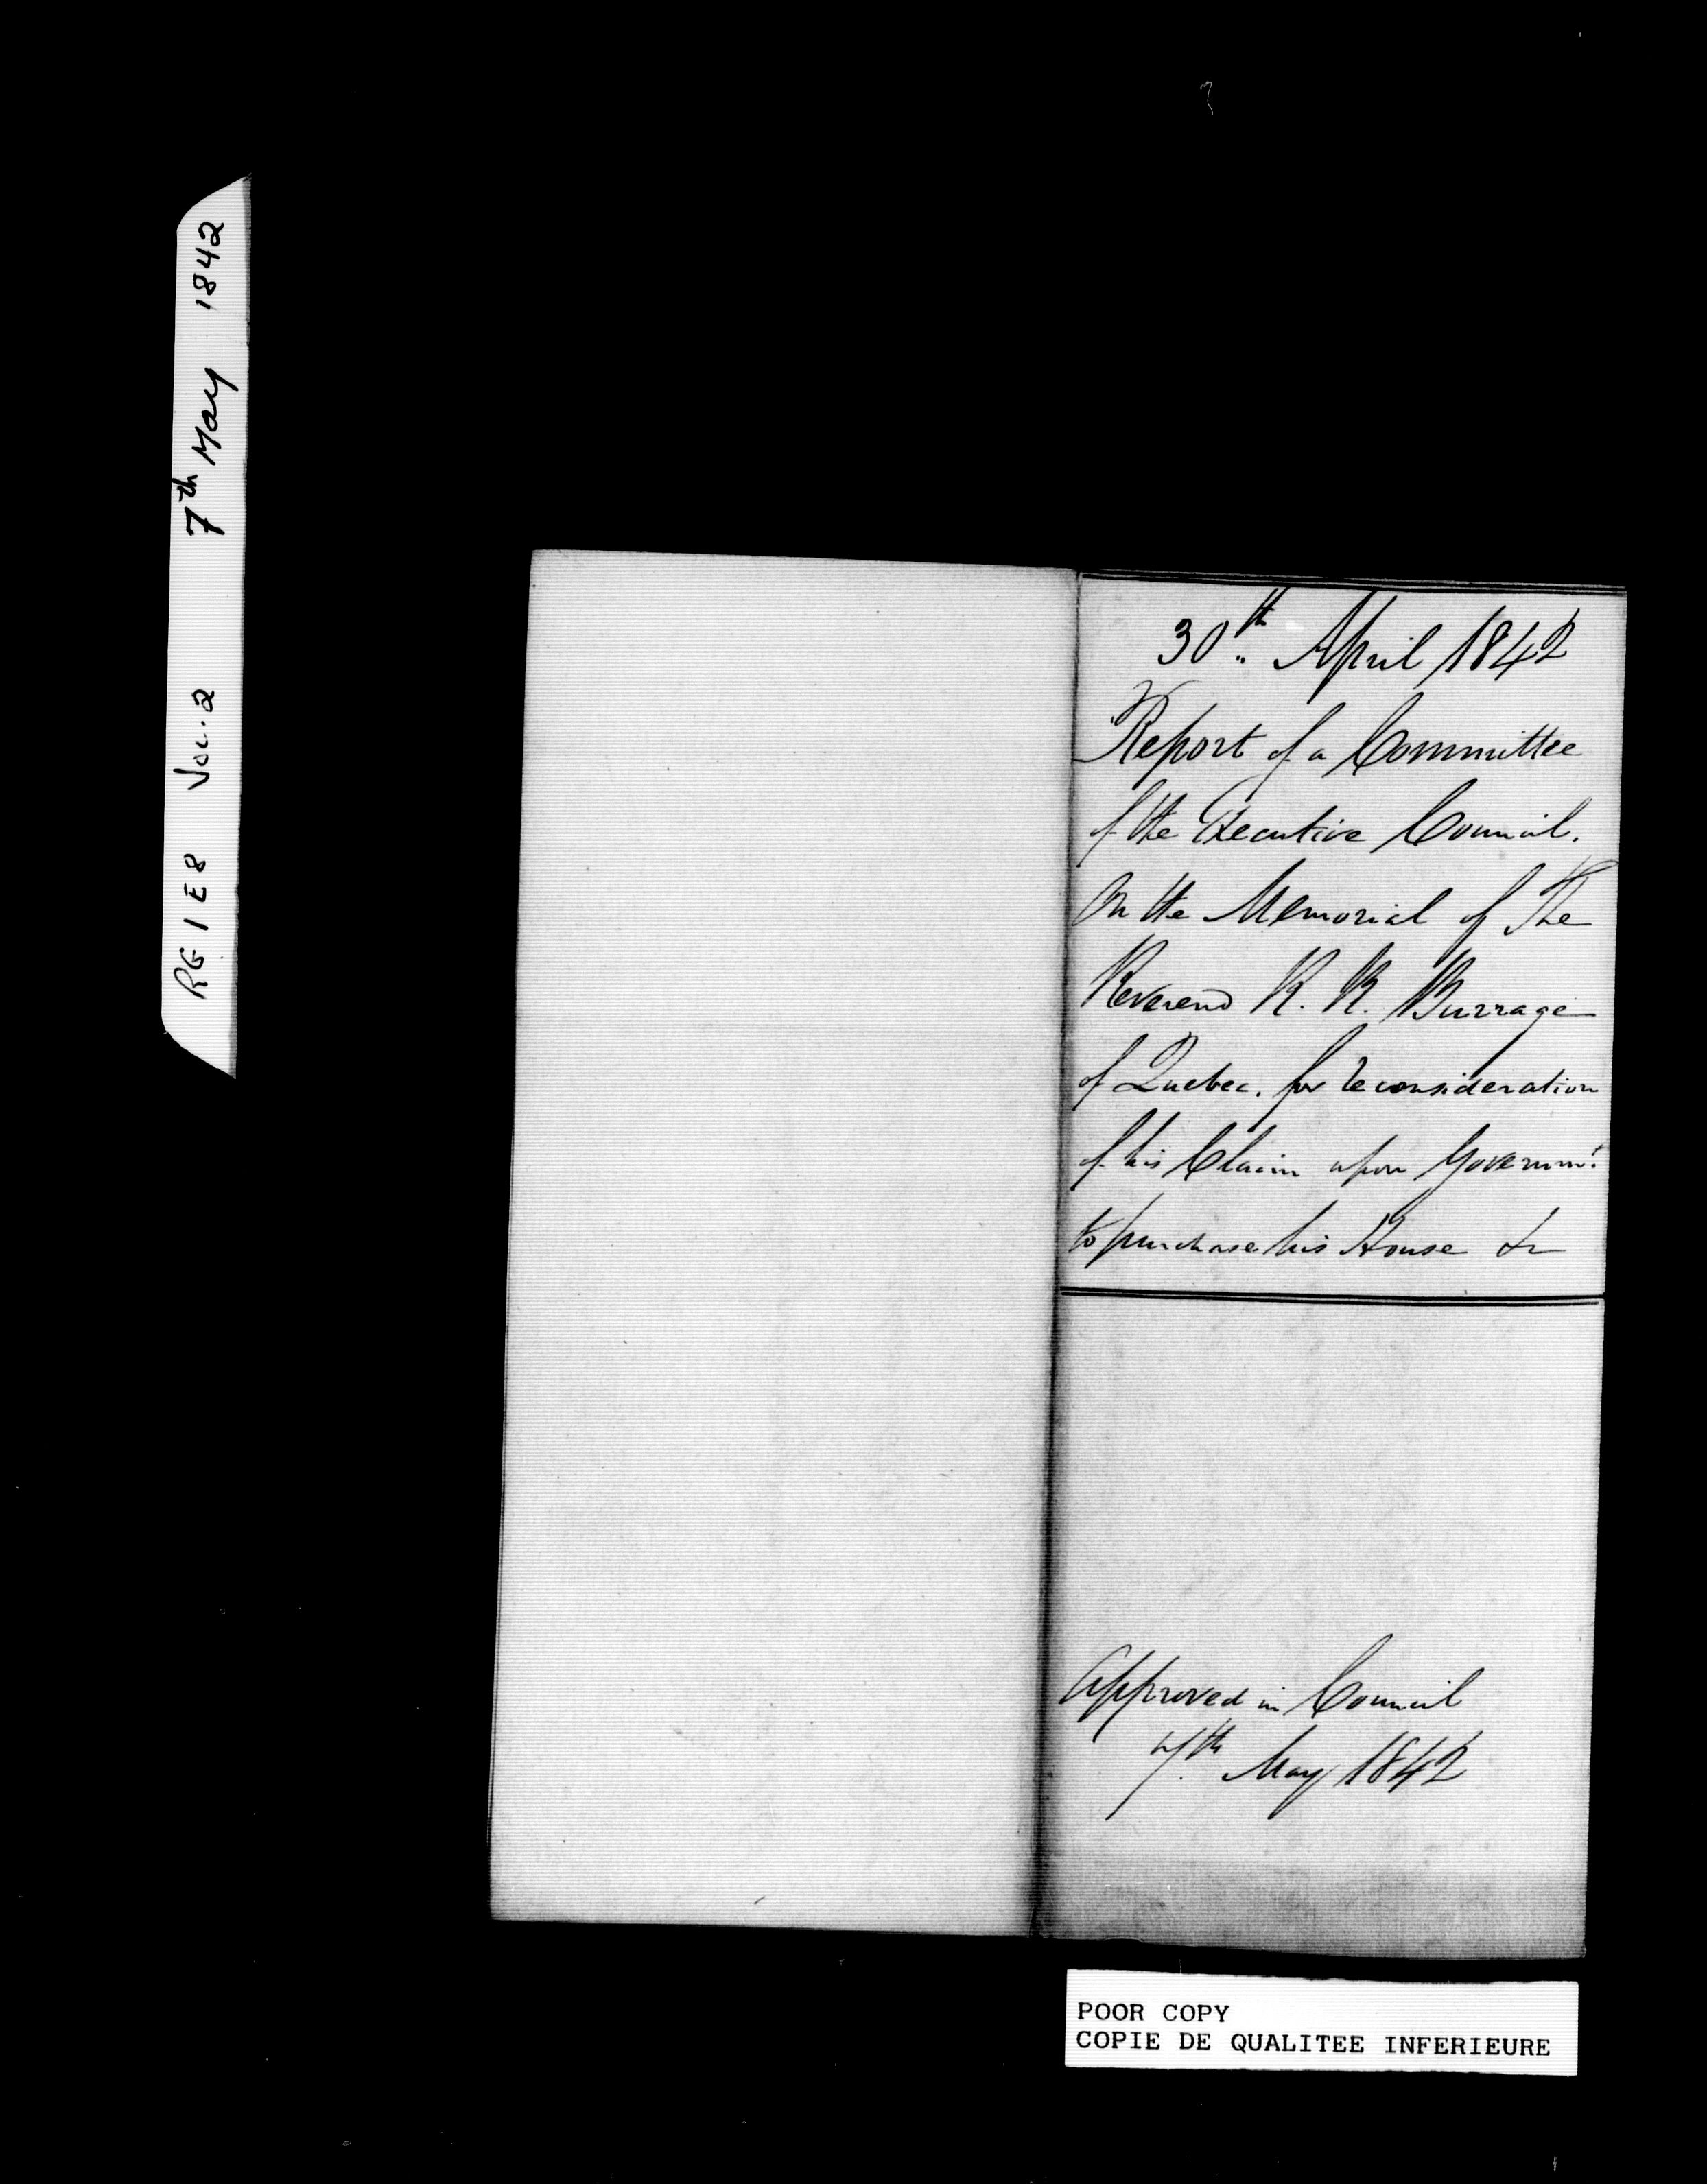 RG 1 E8 Vol. 2 7th May 1842
30th April 1842
Report of a Committee
of the Executive Council.
On the Memorial of The
Reverend R. R. Burrage
of Quebec. for reconsideration
of his Claim upon Governmt.
to purchase his House &c
Approved in Council
7th May 1842
POOR COPY
COPIE DE QUALITEE INFERIEURE